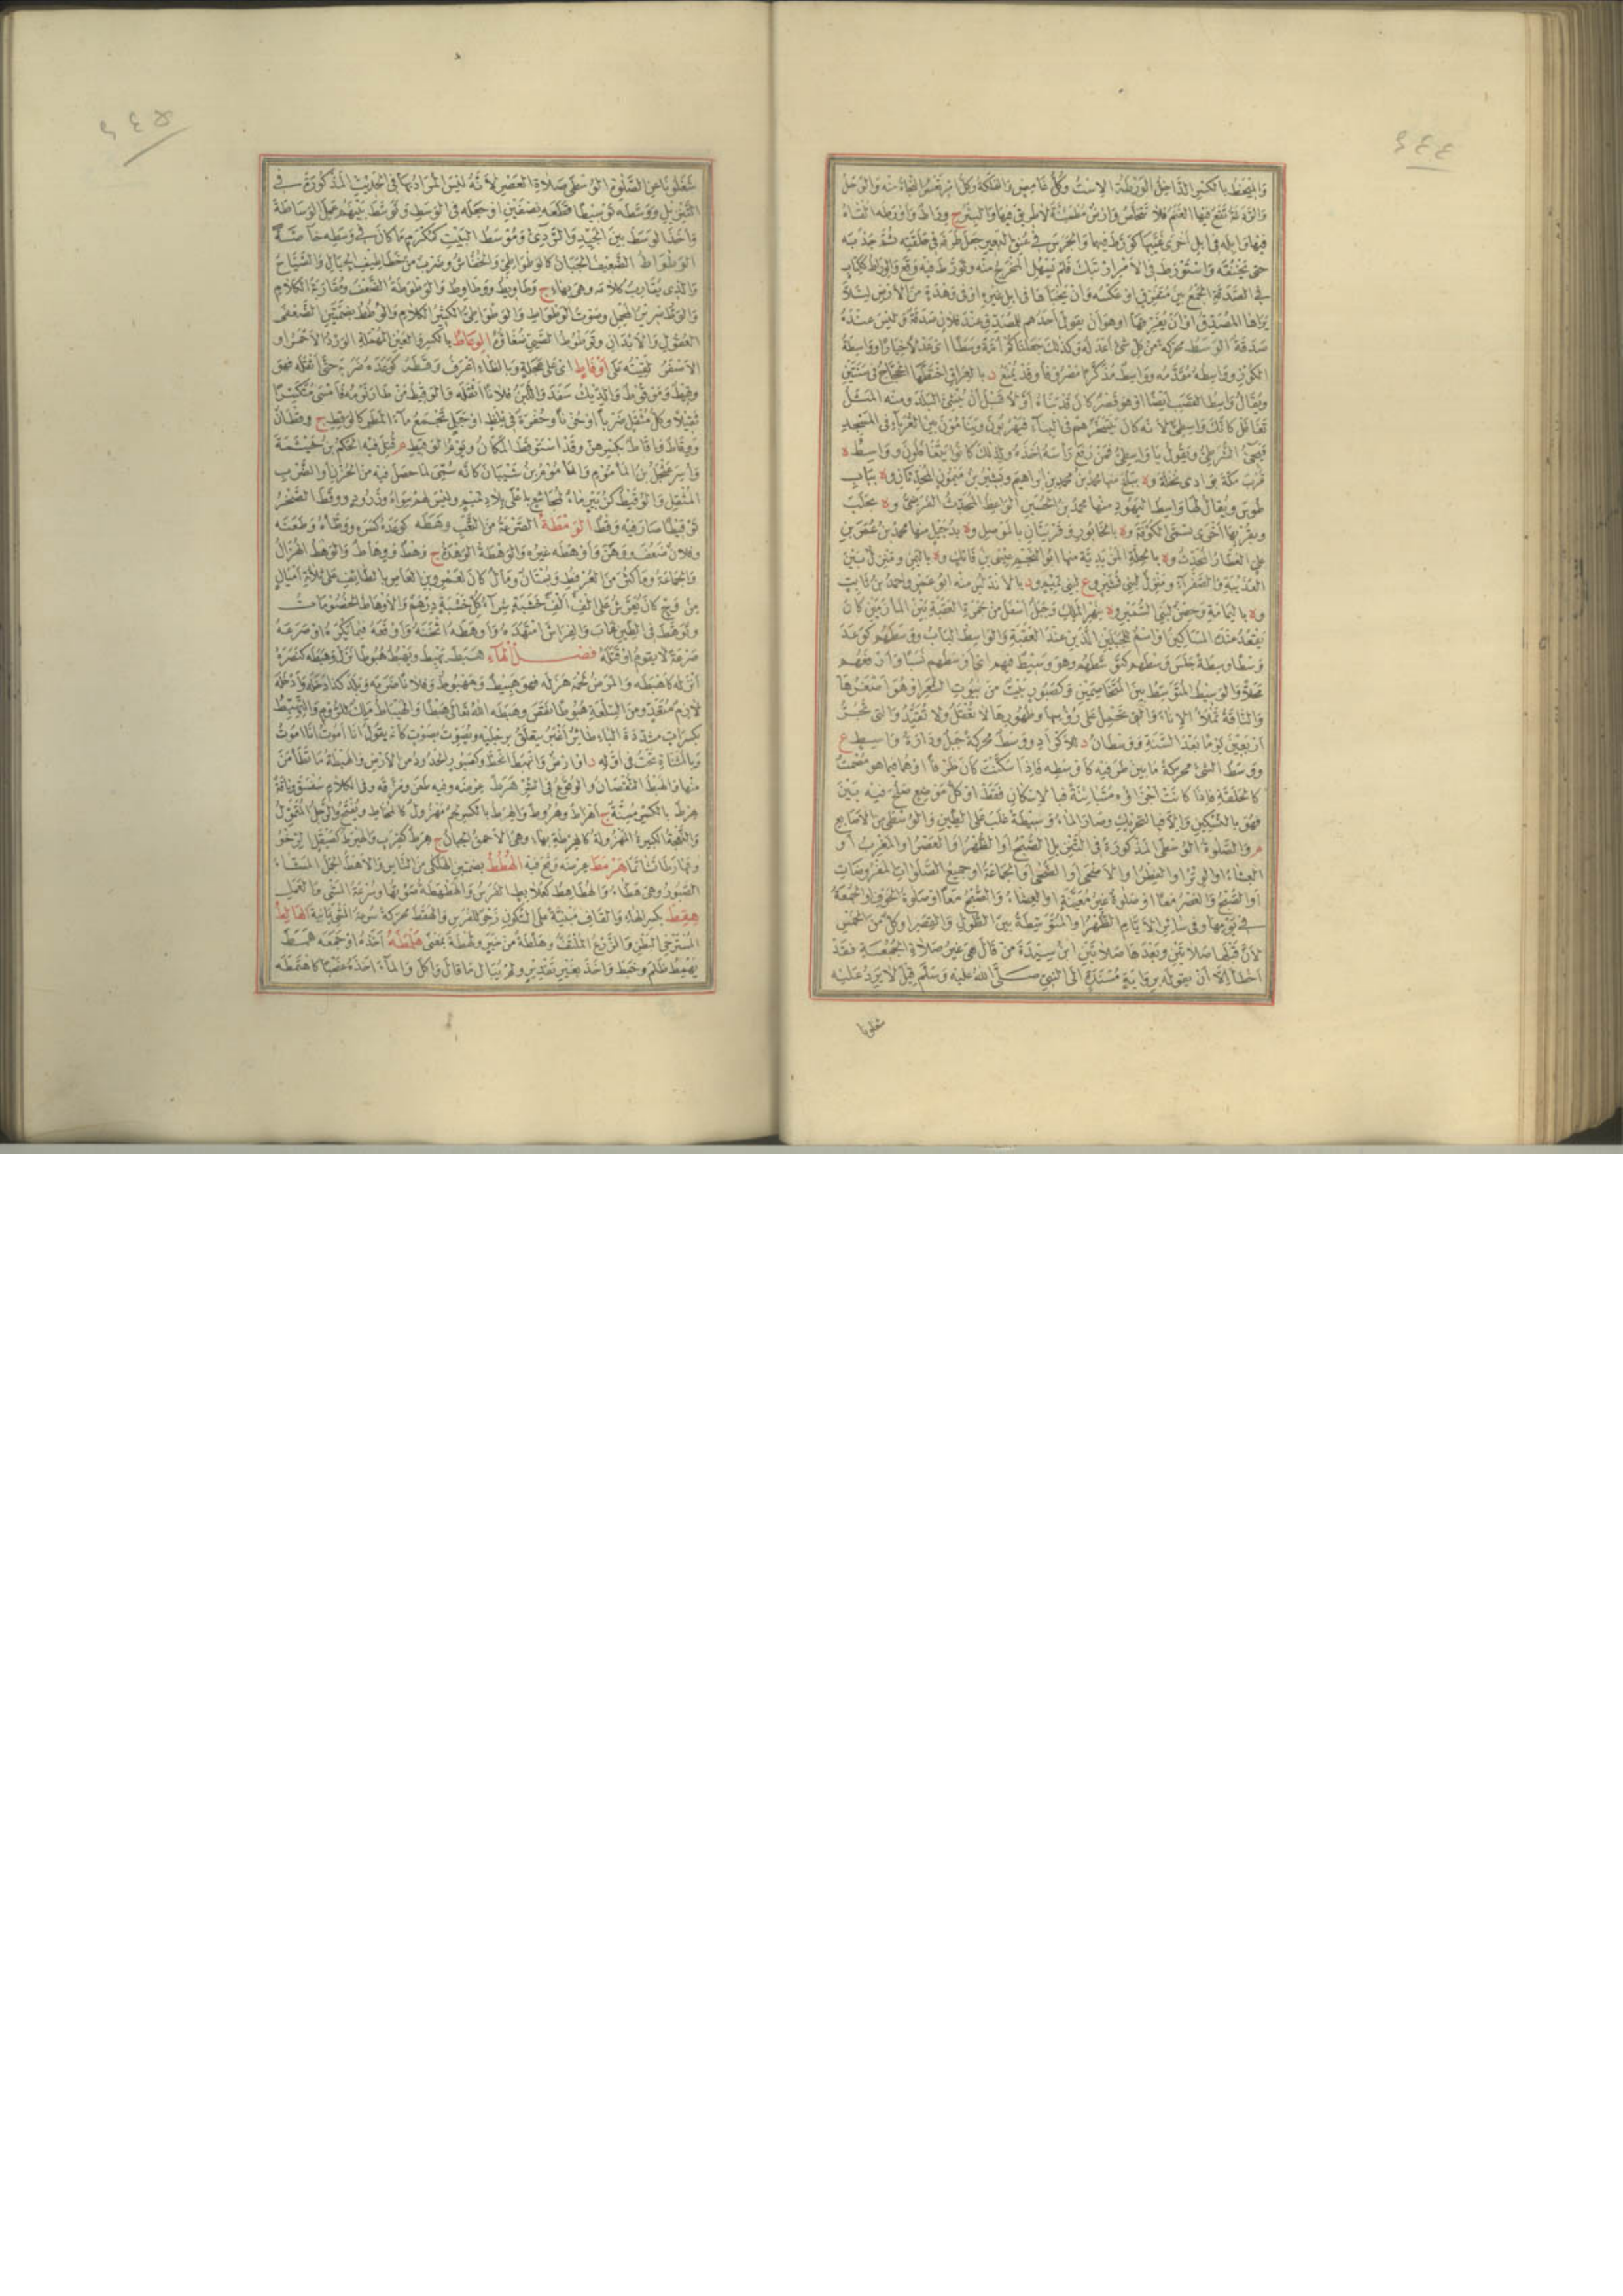 ٤٤٤
والميخط بالكسر الداخل الورطة الاست وكل غامض والهلكة وكل امر تعسر النجاة منه والوحل
والردغة تقع فيها الغنم فلا تتخلص وارض مطمئنة لا طريق فيها والبئر ج وراط واورطه القاه
فيها وابله في ابل اخرى غيبها كورط فيها والجرير في عنق البعير جعل طرفه في حلقته ثم جذبه
حتى يخنقه واستورط في الامر ارتبك فلم يسهل المخرج منه وتورط فيه وقع والوراط ككتاب
في الصدقة الجمع بين متفرق او عكسه وان يخبأها في ابل غيره او في وهدة من الارض لئلا
يراها المصدق او ان يفرقها او هو ان يقول احدهم للمصدق عند فلان صدقة وليس عنده
صدقة الوسط محركة من كل شئ اعدله وكذلك جعلناكم امة وسطا اي عدلا خيارا وواسطة
الكور وواسطه مقدمه وواسط مذكرا مصروفا وقد يمنع د بالعراق اختطها الحجاج في سنتين
ويقال واسط القصب ايضا او هو قصر كان قد بناه اولا قبل ان ينشئ البلد ومنه المثل
تغافل كانك واسطي لانه كان يتسخرهم في البناء فيهربون وينامون بين الغرباء في المسجد
فيجئ الشرطي ويقول يا واسطي فمن رفع رأسه اخذه فلذلك كانوا يتغافلون وواسط ة
قرب مكة بوادي نخلة وة ببلخ منها محمد بن محمد بن ابراهيم وبشير بن ميمون المحدثان وة بباب
طوس ويقال لها واسط اليهود منها محمد بن الحسين الواعظ المحدث الفرضي وة بحلب
وبقربها اخرى تسمى الكوفة وة بالخابور وقريتان بالموصل وة بدجيل منها محمد بن عمر بن
علي العطار المحدث وة بالحلة المزيدية منها ابو النجم عيسى بن فاتك وة باليمن ومنزل بين
العذيبة والصفراء ومنزل لبني قشير وع لبني تميم ود بالاندلس منه ابو عمر واحمد بن ثابت
وة باليمامة وحصن لبني السمير وة بنهر الملك وجبل اسفل من جمرة العقبة بين المأزمين كان
يقعد عنده المساكين او اسم للجبلين اللذين عند العقبة والواسط الباب ووسطهم كوعد
وسطا وسطة جلس وسطهم كتوسطهم وهو وسيط فيهم اي اوسطهم نسبا وارفعهم
محلا والوسيط المتوسط بين المتخاصمين وكصبور بيت من بيوت الشعر او هو اصغرها
والناقة تملأ الاناء والتي تحمل على رؤسها وظهورها لا تعقل ولا تقيد والتي تجر
اربعين يوما بعد السنة ووسطان د للاكراد ووسط محركة جبل ودارة واسط ع
ووسط الشئ محركة ما بين طرفيه كاوسطه فاذا سكنت كان ظرفا او هما فيما هو مصمت
كالحلقة فاذا كانت اجزاؤه متباينة فبالاسكان فقط او كل موضع صلح فيه بين
فهو بالتسكين والا فبالتحريك وصار الماء وسيطة غلب على الطين والوسطى من الاصابع
م والصلوة الوسطى المذكورة في التنزيل الصبح او الظهر او العصر او المغرب او
العشاء او الوتر او الفطر او الاضحى او الضحى او الجماعة او جميع الصلوات المفروضات
او الصبح والعصر معا او صلوة غير معينة او العشاء والصبح معا او صلوة الخوف او الجمعة
في يومها وفي سائر الايام الظهر او المتوسطة بين الطول والقصر او كل من الخمس
لان قبلها صلاتين وبعدها صلاتين ابن سيدة من قال هي غير صلاة الجمعة فقد
اخطأ الا ان يقوله برواية مسندة الى النبي صلى الله عليه وسلم قيل لا يرد عليه
شغلونا
٤٤٥
شغلونا عن الصلوة الوسطى صلاة العصر لانه ليس المراد بها في الحديث المذكورة في
التنزيل ووسطه توسيطا قطعه نصفين او جعله في الوسط وتوسط بينهم عمل الوساطة
واخذ الوسط بين الجيد والردئ وموسط البيت كمكرم ما كان في وسطه خاصة
الوطواط الضعيف الجبان كالوطواطي والخفاش وضرب من خطاطيف الجبال والصياح
والذي يقارب كلامه وهي بهاء ج وطاويط ووطاوط والوطوطة الضعف ومقاربة الكلام
والوط صرير المحمل وصوت الوطواط والوطواطي الكثير الكلام والوطط بضمتين الضعفى
العقول والابدان وتوطوط الصبي ضغا ة الوعاط بالكسر والعين المهملة الورد الاحمر او
الاصفر لقيته على اوفاط اي على عجلة وبالظاء اعرف وقطه كوعده ضربه حتى اثقله فهو
وقيط وموقوط والديك سفد واللبن فلانا اثقله والوقيط من طار نومه فامسى متكسرا
ثقيلا وكل مثقل ضربا او حزنا وحفرة في غلظ او جبل تجمع ماء المطر كالوقط ج وقطان
ووقاط واقاط بكسرهن وقد استوقط المكان ويوم الوقيط م قتل فيه الحكم بن خيثمة
واسر عثجل بن المأموم والمأموم بن شيبان كانه سمي لما حصل فيه من الحزن والضرب
المثقل والوقيط كزبير ماء لمجاشع باعلى بلاد تميم وليس لهم سواه وزرود ووقط الصخر
توقيطا صار فيه وقط الومطة الصرعة من التعب وهطه كوعده كسره ووطأه وطعنه
وفلان ضعف ووهن واوهطه غيره والوهطة الوهدة ج وهط ووهاط والوهط الهزال
والجماعة وما كثر من العرفط وبستان ومال كان لعمرو بن العاص بالطائف على ثلاثة اميال
من وج كان يعرش على الف الف خشبة شراء كل خشبة درهم والاوهاط الخصومات
وتوهط في الطين غاب والفراش امتهده واوهطه اثخنه واوقعه فيما يكره او صرعه
صرعة لا يقوم او قتله فصل الهاء هبط يهبط ويهبط هبوطا نزل وهبطه كنصره
انزله كاهبطه والمرض لحمه هزله فهو هبيط ومهبوط وفلانا ضربه وبلد كذا دخله وادخله
لازم متعد وثمن السلعة هبوطا نقص وهبطه الله تعالى هبطا والهيباط ملك للروم والتهبط
بكسرات مشددة الباء طائر اغبر يتعلق برجليه ويصوت بصوت كانه يقول انا اموت انا اموت
وبالمثناة تحت في اوله د او ارض وانهبط انحط وكصبور الحدور من الارض والهبطة ما تطأمن
منها والهبط النقصان والوقوع في الشر هرط عرضه وفيه طعن ومزقه وفي الكلام سفسف وناقة
هرط بالكسر مسنة ج اهراط وهروط والهرط بالكسر لحم مهزول كالمخاط ويفتح والرجل المتمول
والنعجة الكبيرة المهزولة كالهرطة بهاء وهي الاحمق الجبان ج هرط كقرب والهيرط كصيقل الرخو
وتهارطا تشاتما هرمط عرضه وقع فيه الهطط بضمتين الهلكى من الناس والاهط الجمل المشاء
الصبور وهي هطاء والهطاهط كعلابط الفرس والهطهطة صوتها وسرعة المشي والعمل
هقط بكسر الهاء والقاف مبنية على السكون زجر للفرس والهقط محركة سرعة المشي يمانية الهالط
المسترخي البطن والزرع الملتف وهلطة من خبر ولهطة بمعنى هلطه اخذه او جمعه همط
يهمط ظلم وخبط واخذ بغير تقدير ولم يبال ما قال واكل والماء اخذه غصبا كاهتمطه